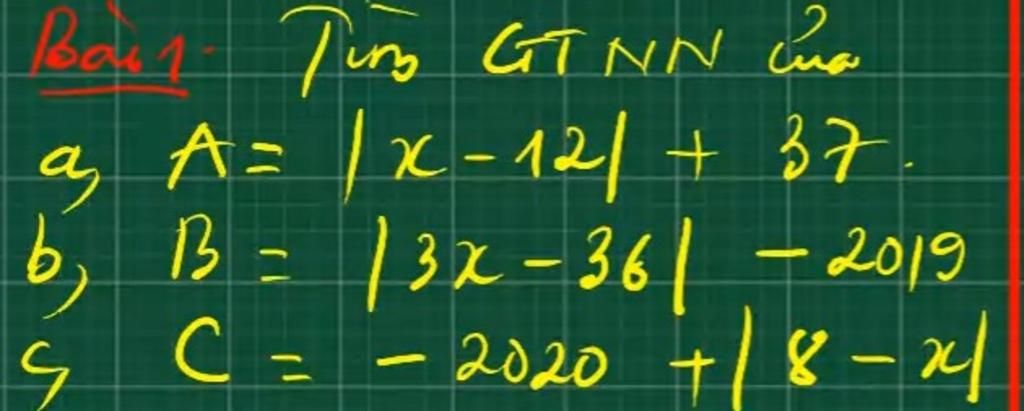 Bài 1. Tìm GTNN của
a, A = |x - 12| + 37.
b, B = |3x - 36| - 2019
c, C = - 2020 + |8 - x|